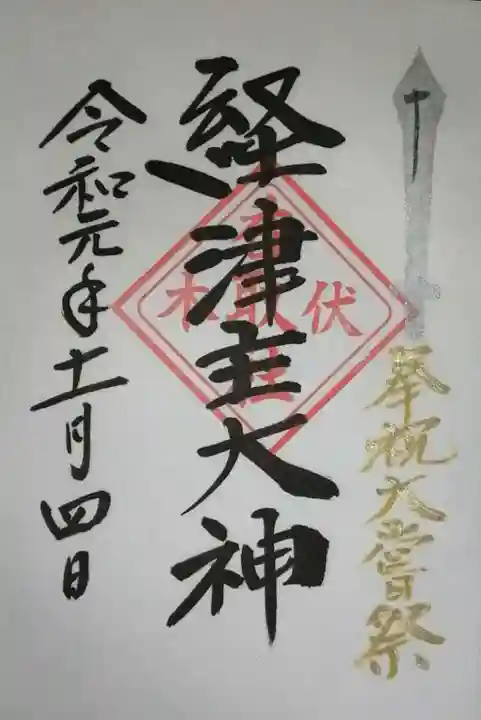 奉祝大嘗祭
経津主大神
伏木
香取
神社
令和元年十一月四日